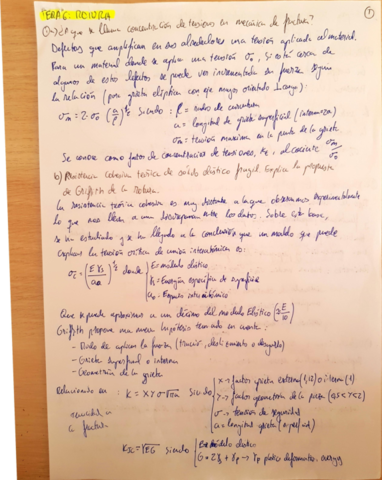 TEMA 6. ROTURA
1
a) ¿A que se llama concentración de tensiones en mecánica de fractura?
Defectos que amplifican en sus alrededores una tensión aplicada al material.
Para un material donde se aplica una tensión σ₀, si está cerca de
algunos de estos defectos se puede ver incrementada su fuerza según
la relación (para grieta elíptica con eje mayor orientado largo):
σm = 2·σ₀ (a/ρ)^½ siendo: ρ = radio de curvatura
a = longitud de grieta superficial (interna = 2a)
σm = tensión máxima en la punta de la grieta
Se conoce como factor de concentración de tensiones, Ke, al cociente σm/σ₀
b) Resistencia cohesiva teórica de sólido elástico frágil. Explica la propuesta
de Griffith de la Rotura.
La resistencia teórica cohesiva es muy distante a la que observamos experimentalmente
lo que nos lleva a una discrepancia entre los datos. Sobre esta base,
se ha estudiado y se ha llegado a la conclusión que un modelo que puede
explicar la tensión crítica de unión interatómica es:
σc = (E γs/a₀)^½ donde E = módulo elástico
γs = Energía específica de superficie
a₀ = Espacio interatómico
Que se puede aproximar a un décimo del modulo Elástico (≈E/10)
Griffith propone una nueva hipótesis teniendo en cuenta:
- Modo de aplicar la fuerza (tracción, deslizamiento o desgarro)
- Grieta superficial o interna
- Geometría de la grieta
Relacionando en: K = X Y σ √πa siendo X → factor grieta externa (1,12) o interna (1)
Y → factor geometría de la pieza
σ → tensión de seguridad
a = longitud grieta (superficial)
a fractura
KIC = √EG siendo E = módulo elástico
G = 2γs + γp → γp plástica deformation